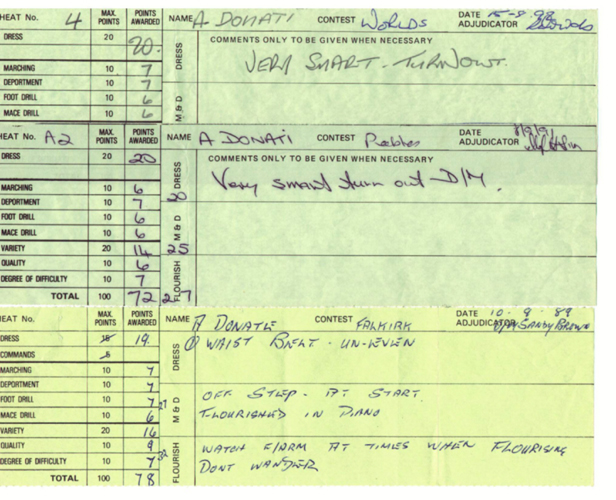 HEAT No. 4 MAX. POINTS POINTS AWARDED NAME A DONATI CONTEST WORLDS DATE 15-8-98
ADJUDICATOR
DRESS 20 20. DRESS COMMENTS ONLY TO BE GIVEN WHEN NECESSARY
VERY SMART - TURNOUT.
MARCHING 10 7
DEPORTMENT 10 7
FOOT DRILL 10 6 M & D
MACE DRILL 10 6
HEAT No. A2 MAX. POINTS POINTS AWARDED NAME A DONATI CONTEST Peebles DATE
ADJUDICATOR
DRESS 20 20 DRESS 20 COMMENTS ONLY TO BE GIVEN WHEN NECESSARY
Very smart turn out D/M.
MARCHING 10 6
DEPORTMENT 10 7
FOOT DRILL 10 6 M & D
MACE DRILL 10 6
VARIETY 20 14 25
QUALITY 10 6
DEGREE OF DIFFICULTY 10 7 FLOURISH
TOTAL 100 72 27
HEAT No. MAX. POINTS POINTS AWARDED NAME A DONATE CONTEST FALKIRK DATE 10.9.89
ADJUDICATOR D/M SANDY BROWN
DRESS 15 19 DRESS WAIST BELT - UN-EVEN
COMMANDS 5
MARCHING 10 7
DEPORTMENT 10 7 OFF STEP - AT START
FOOT DRILL 10 7 27 M & D FLOURISHED IN PIANO
MACE DRILL 10 6
VARIETY 20 16
QUALITY 10 9 FLOURISH WATCH F/ARM AT TIMES WHEN FLOURISING
DEGREE OF DIFFICULTY 10 7 32 DONT WANDER
TOTAL 100 78